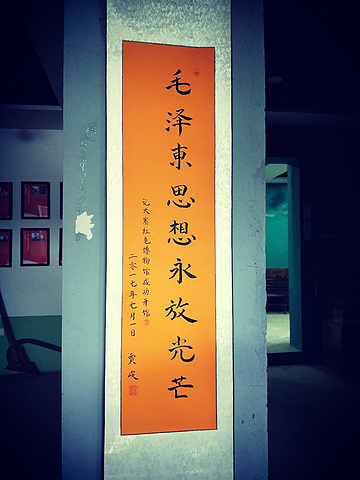 毛泽東思想永放光芒
记大寨红色博物馆成功开馆
二零一七年七月一日
贾俊